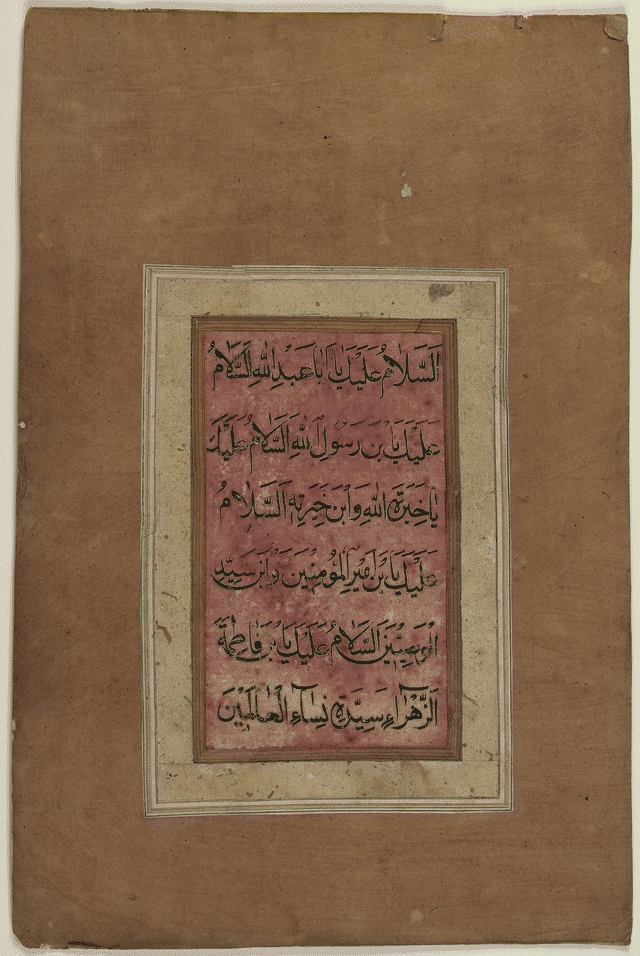 اَلسَّلامُ عَلَيْكَ يا اَبا عَبْدِ اللهِ اَلسَّلامُ
عَلَيْكَ يَا بْنَ رَسُولِ اللهِ اَلسَّلامُ عَلَيْكَ
يا خِيَرَةَ اللهِ وَابْنَ خِيَرَتِهِ اَلسَّلامُ
عَلَيْكَ يَا بْنَ اَميرِ الْمُؤْمِنينَ وَابْنَ سَيِّدِ
الْوَصِيّينَ اَلسَّلامُ عَلَيْكَ يَا بْنَ فاطِمَةَ
الزَّهْراءِ سَيِّدَةِ نِساءِ الْعالَمينَ